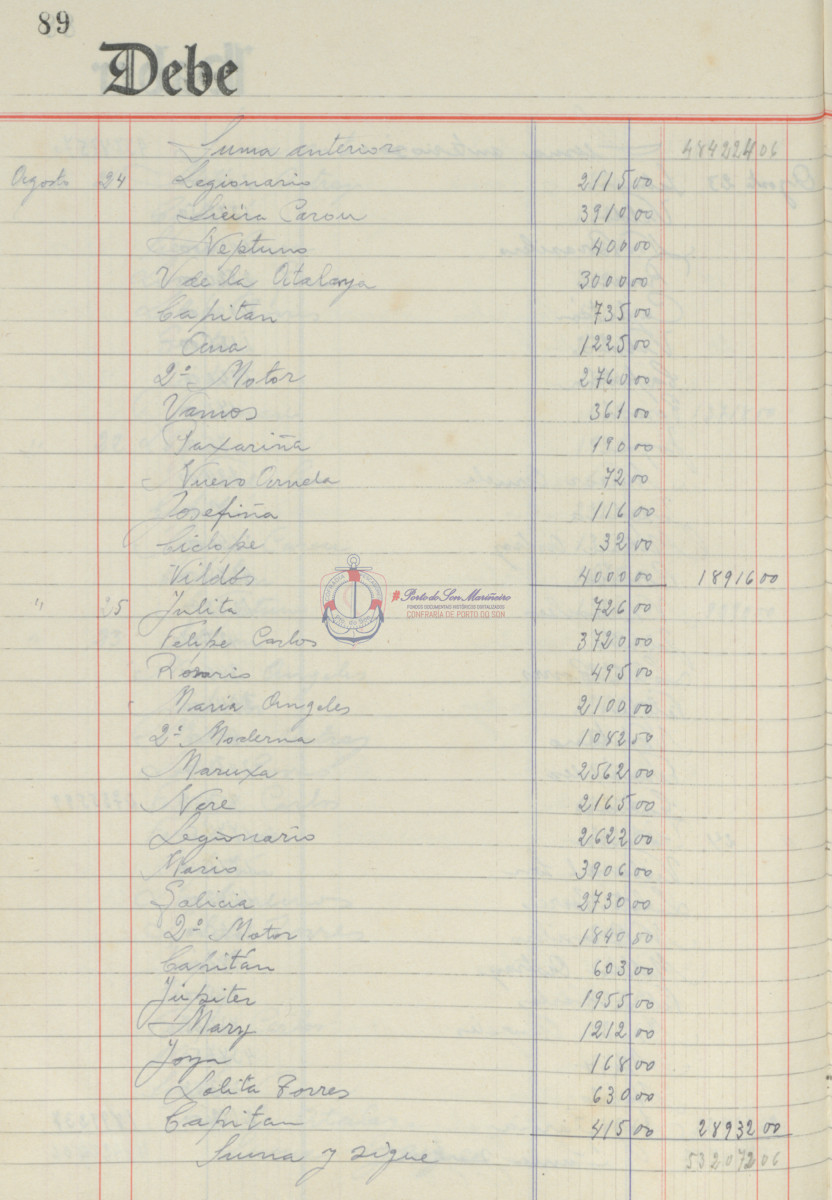 89
Debe
Suma anterior 484224 06
Agosto 24 Legionario 2115 00
Lieira Carou 3910 00
Neptuno 400 00
V de la Atalaya 3000 00
Capitan 735 00
Ana 1225 00
2º Motor 2760 00
Vamos 361 00
Paxariña 190 00
Nuevo Arnela 72 00
Josefiña 116 00
Ciclope 32 00
Vildós 4000 00 18916 00
" 25 Julita 726 00
Felipe Carlos 3720 00
Rosario 495 00
Maria Angeles 2100 00
2ª Moderna 1082 50
Maruxa 2562 00
Nere 2165 00
Legionario 2622 00
Mario 3906 00
Galicia 2730 00
2º Motor 1840 50
Capitán 603 00
Júpiter 1955 00
Mary 1212 00
Joya 168 00
Lolita Torres 630 00
Capitan 415 00 28932 00
Suma y sigue 532072 06
#Porto do Son Mariñeiro
FONDOS DOCUMENTAIS HISTÓRICOS DIXITALIZADOS
CONFRARÍA DE PORTO DO SON